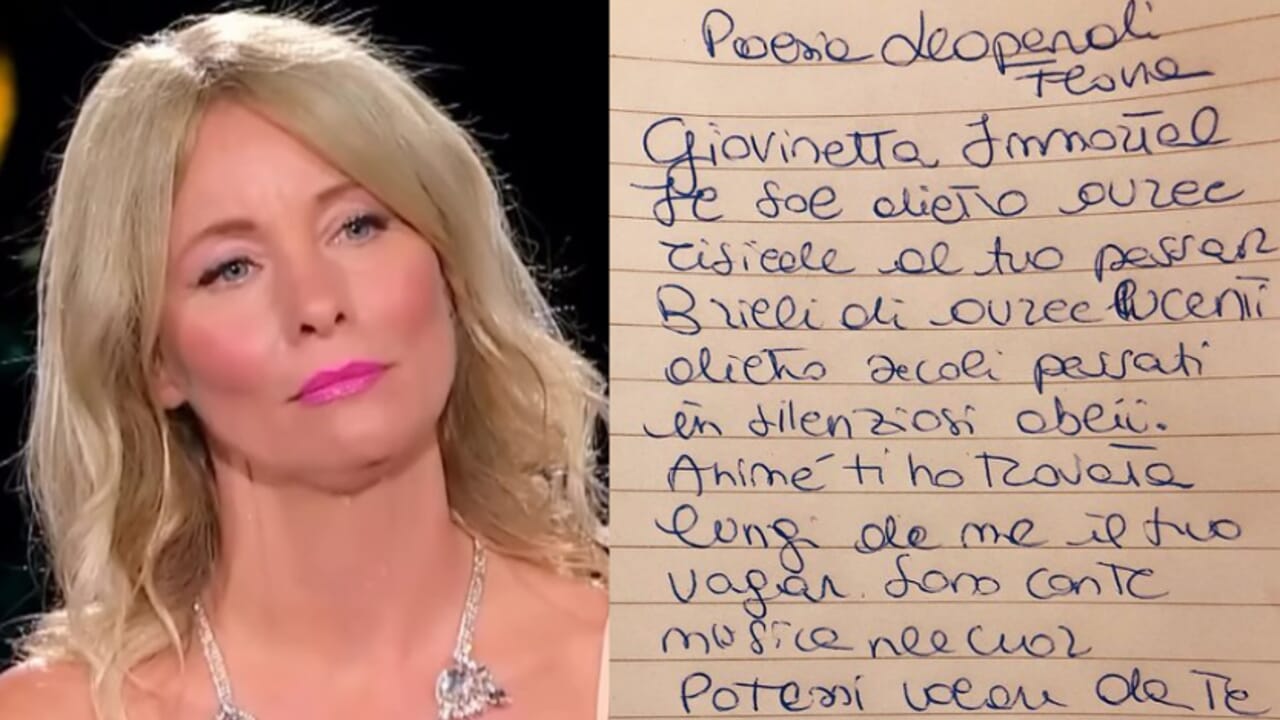 Poesia Leopardi
Giovinetta Immortal
Sol dietro auree
al tuo passar
Brilli di auree lucenti
dietro secoli passati
in silenziosi oblii.
Anima ti ho trovata
lungi da me il tuo
vagar. Sono con Te
musica nel cuor
Potessi volar da Te